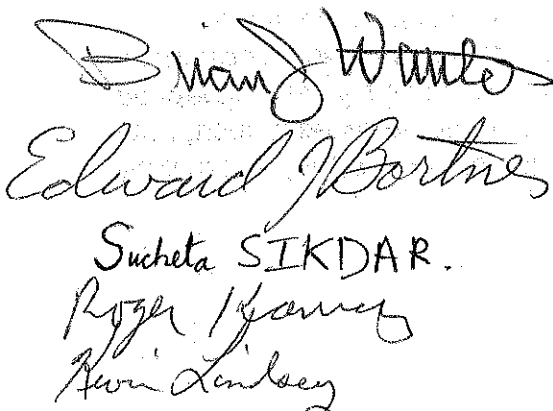 Brian J
Edward J Bortner
Sucheta SIKDAR.
Roger
Kevin Lindsey